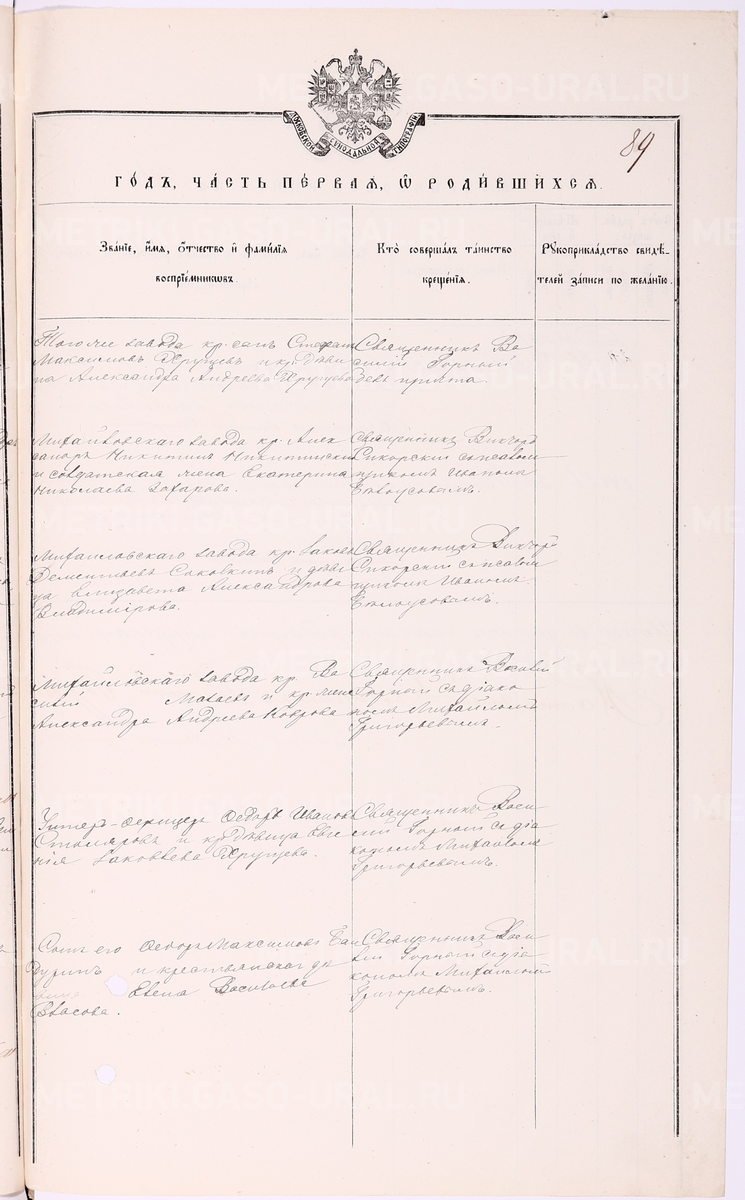 89
МОСКОВСКОЙ СѴНОДАЛЬНОЙ ТИПОГРАФІИ
ГО́ДЪ, ЧА́СТЬ ПЕ́РВАЯ, Ѡ҆ РОДИ́ВШИХСЯ.
Зва́нїе, и҆́мя, ѻ҆́тчество и҆ фами́лїя
воспрїе́мникѡвъ.
Кто̀ соверша́лъ та́инство
креще́нїя.
Рꙋкоприкла́дство свидѣ́-
телей за́писи по жела́нїю.
Того же завода кр. сынъ Стефанъ
Максимовъ Хрущевъ и кр. дѣви
ца Александра Андреева Хрущева
Священникъ Ва
силій Горный
безъ причта
Михайловскаго завода кр. Алек
сандръ Никитинъ
и солдатская жена Екатерина
Николаева Захарова.
Священникъ Викторъ
Сикорскій съ псалом
щикомъ Иваномъ
Бѣлоусовымъ.
Михайловскаго завода кр. Яковъ
Дементьевъ Соковкинъ и дѣви
ца Елизавета Александрова
Владимірова.
Священникъ Викторъ
Сикорскій съ псалом
щикомъ Иваномъ
Бѣлоусовымъ.
Михайловскаго завода кр. Ва
силій и кр. жена
Александра Андреева
Священникъ Василій
Горный съ діако
номъ Михаиломъ
Григорьевымъ.
Унтеръ-офицеръ Ѳедоръ Ивановъ
Столяровъ и кр. дѣвица Евге
нія Яковлева Хрущева.
Священникъ Васи
лій Горный съ діа
кономъ Михаиломъ
Григорьевымъ.
Сынъ его Ѳедоръ Максимовъ
и крестьянская дѣ
Елена Васильева
Власова.
Священникъ Васи
лій Горный съ діа
кономъ Михаиломъ
Григорьевымъ.
METRIKI.GASO-URAL.RU